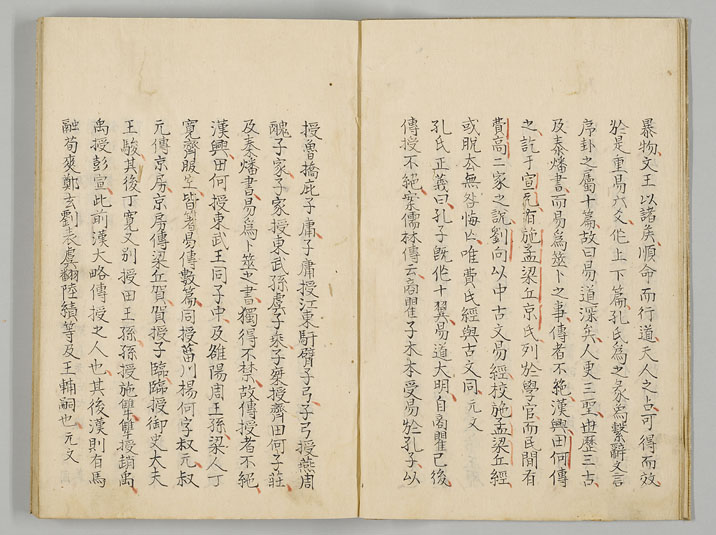 暴物文王以諸矦順命而行道天人之占可得而效
於是重易六爻作上下篇孔氏為之彖為繫辭文言
序卦之屬十篇故曰易道深矣人更三聖世歷三古
及秦燔書而易為筮卜之事傳者不絕漢興田何傳
之訖于宣元有施孟梁丘京氏列於學官而民間有
費高二家之說劉向以中古文易經校施孟梁丘經
或脫去無咎悔亡唯費氏經與古文同元文
孔氏正義曰孔子旣作十翼易道大明自商瞿已後
傳授不絕案儒林傳云商瞿子木本受易於孔子以
授魯橋庇子庸子庸授江東馯臂子弓子弓授燕周
醜子家子家授東武孫虞子乘子乘授齊田何子莊
及秦燔書易為卜筮之書獨得不禁故傳授者不絕
漢興田何授東武王同子中及雒陽周王孫梁人丁
寬齊服生皆著易傳數篇同授菑川楊何字叔元叔
元傳京房京房傳梁丘賀賀授子臨臨授御史大夫
王駿其後丁寬又别授田王孫孫授施讎讎授張禹
禹授彭宣此前漢大略傳授之人也其後漢則有馬
融荀爽鄭玄劉表虞翻陸績等及王輔嗣也元文